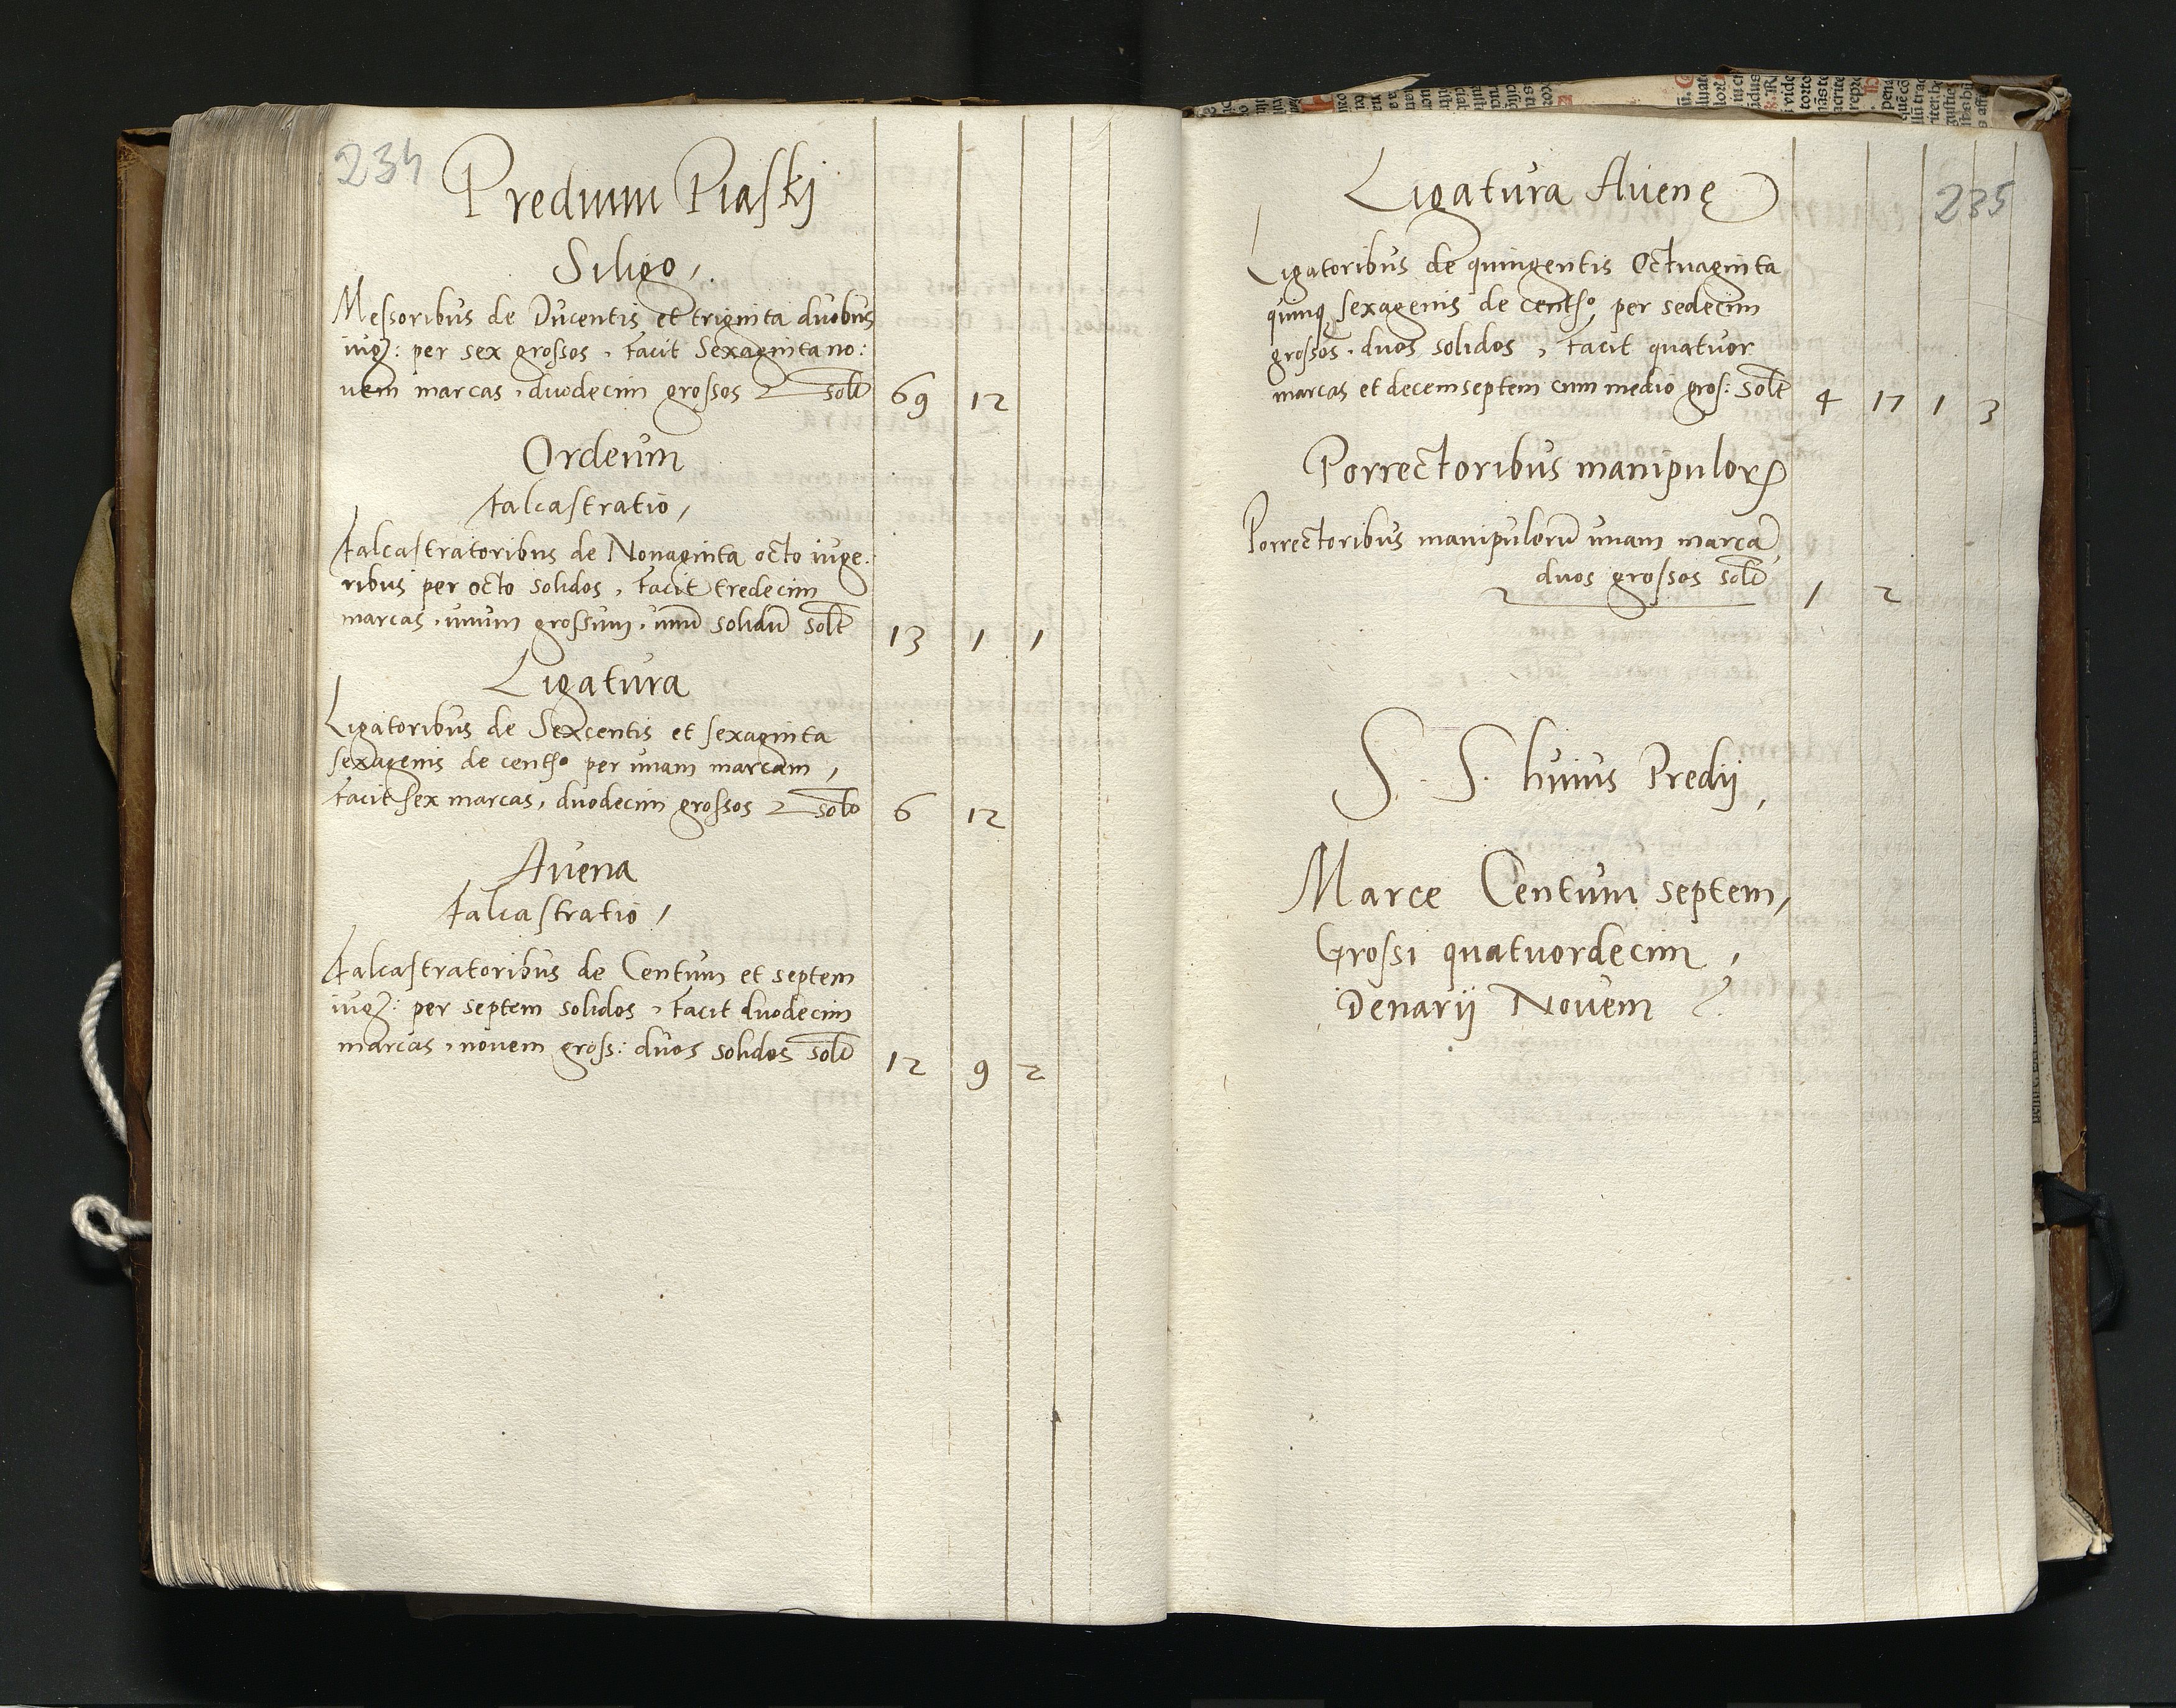 234
Predium Piaski
Siligo,
Messoribus de Ducentis et triginta duobus
iug: per sex grossos, facit Sexaginta no:
vem marcas, duodecim grossos sol 69 12
Ordeum
falcastratio,
falcastratoribus de Nonaginta octo iuge:
ribus per octo solidos, facit tredecim
marcas, unum grossum, unũ solidũ solt 13 1 1
Ligatura
Ligatoribus de Sexcentis et sexaginta
sexagenis de centº per unam marcam,
facit sex marcas, duodecim grossos solº 6 12
Avena
falcastratio,
falcastratoribus de Centum et septem
iug: per septem solidos, facit duodecim
marcas, novem gross: duos solidos sol 12 9 2
235
Ligatura Avenę
Ligatoribus de quingentis Octuaginta
quinq sexagenis de centº, per sedecim
grossos, duos solidos, facit quatuor
marcas et decemseptem cum medio gros: solt 4 17 1 3
Porrectoribus manipulorꝝ
Porrectoribus manipulorũ unam marcã,
duos grossos sol 1 2
S. S. huius Predij,
Marce Centum septem,
Grossi quatuordecim,
Denarij Novem